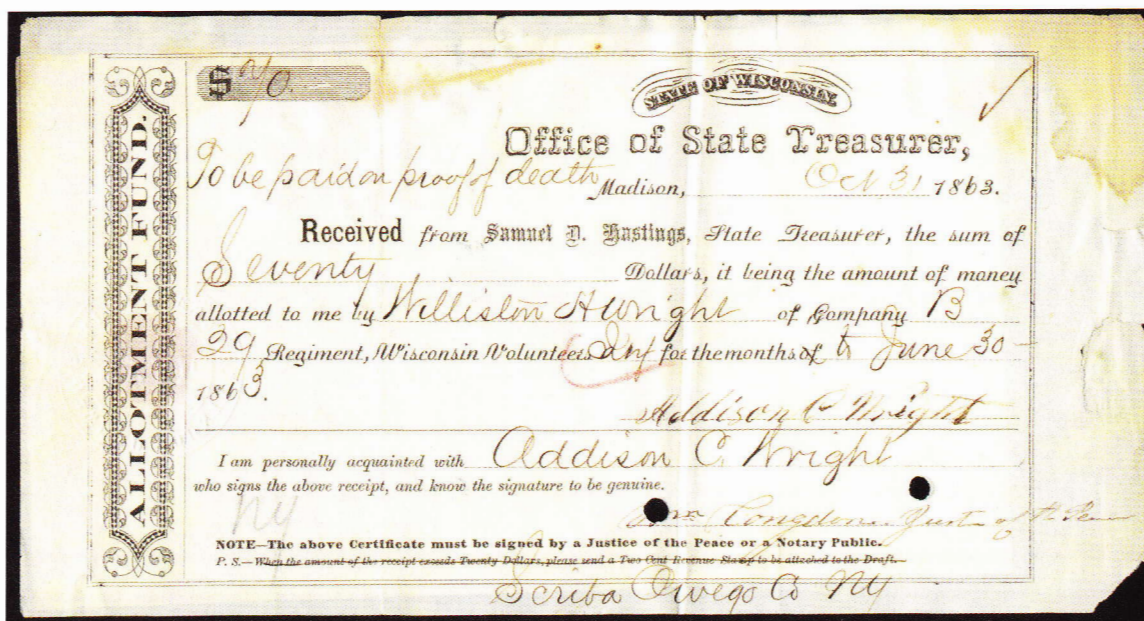 ALLOTMENT FUND.
$ 70.
STATE OF WISCONSIN.
Office of State Treasurer,
To be paid on proof of death Madison, Oct 31 1863.
Received from Samuel D. Hastings, State Treasurer, the sum of
Seventy Dollars, it being the amount of money
allotted to me by Williston H Wright of Company B
29 Regiment, Wisconsin Volunteers Inf for the months of to June 30
1863.
Addison C Wright
I am personally acquainted with Addison C. Wright
who signs the above receipt, and know the signature to be genuine.
NY
Wm Congdon Just of the
NOTE—The above Certificate must be signed by a Justice of the Peace or a Notary Public.
P. S.—When the amount of the receipt exceeds Twenty Dollars, please send a Two Cent Revenue Stamp to be attached to the Draft.
Scriba Owego Co NY